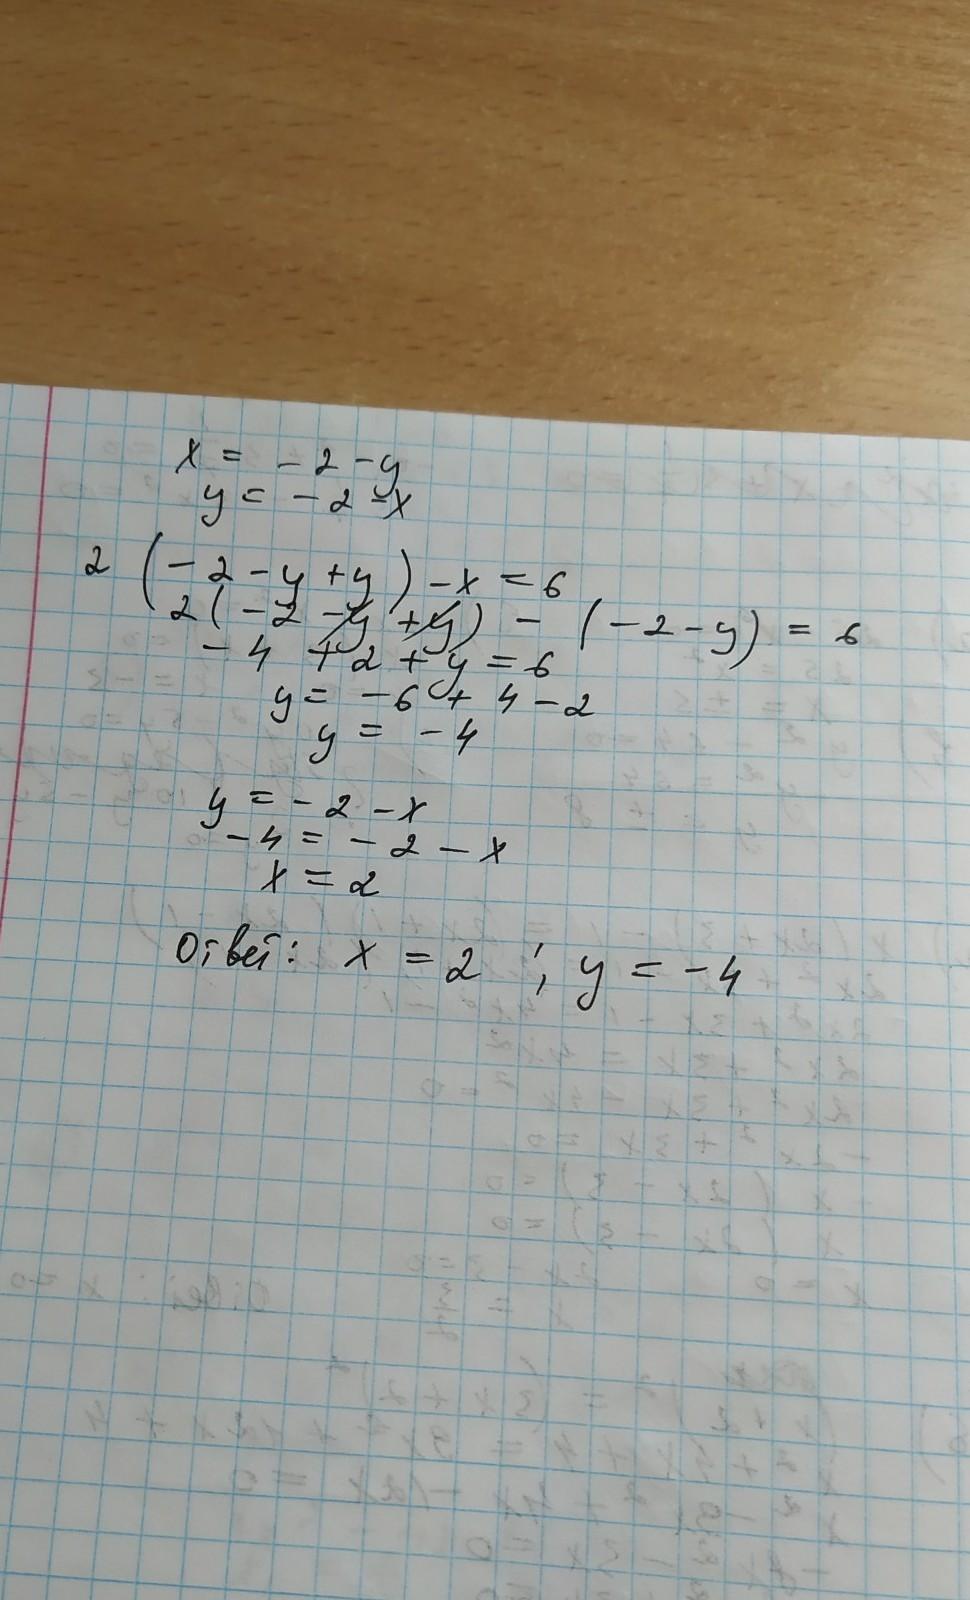 x = -2 -y
y = -2 -x
2 (-2 -y +y) -x = 6
2(-2 -y +y) - (-2-y) = 6
-4 +2 +y = 6
y = -6 + 4 -2
y = -4
y = -2 -x
-4 = -2 -x
x = 2
Ответ: x = 2 ; y = -4